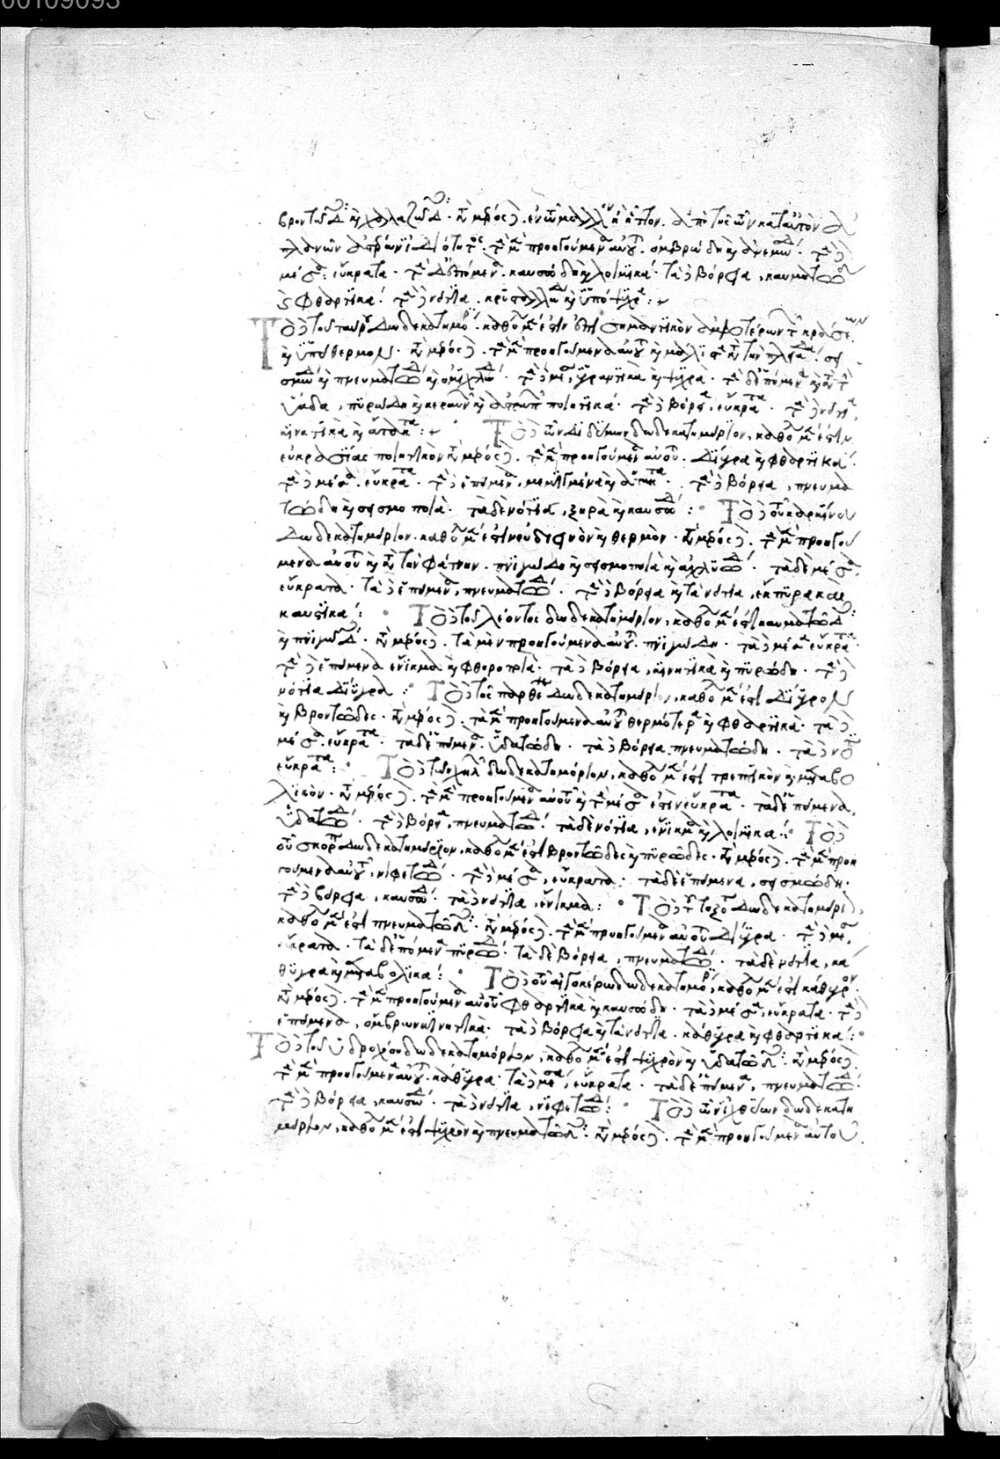 00109093
βροντῶδ καὶ χαλαζῶδ. κατὰ μέρος δὲ. ἐν ᾧ μᾶλλον καὶ ἧττον. διὰ τὰς τῶν κατ' αὐτὸν ἀ
πλανῶν ἀστέρων ἰδιότητας. τὰ μὲν προηγούμενα αὐτοῦ. ὀμβρώδη καὶ ἀνεμώδ. τὰ δὲ
μέσα. εὔκρατα. τὰ δὲ ἑπόμεν. καυσώδη καὶ λοιμικά. τὰ δὲ βόρεια, καυματώδ
καὶ φθαρτικά. τὰ δὲ νότια. κρυσταλλώδ καὶ ὑπόψυχρα:
Τὸ δὲ τοῦ ταύρου δωδεκατημόριον. καθόλου μέν ἐστιν ἐπισημαντικὸν ἀμφοτέρων τῶν κράσεων
καὶ ὑπόθερμον. κατὰ μέρος δὲ. τὰ μὲν προηγούμενα αὐτοῦ καὶ μάλιστα τὰ κατὰ τὴν πλειάδα. σει
σμώδ καὶ πνευματώδ καὶ ὀμιχλώδ. τὰ δὲ μέσα, ὑγραντικὰ καὶ ψυχρά. τὰ δὲ ἑπόμενα καὶ κατὰ τὴν
ὑάδα, πυρώδη καὶ κεραυνῶν καὶ ἀστραπῶν ποιητικά. τὰ δὲ βόρεια, εὔκρατα. τὰ δὲ νότια,
κινητικὰ καὶ ἄτακτα: Τὸ δὲ τῶν διδύμων δωδεκατημόριον, καθόλου μέν ἐστιν
εὐκρασίας ποιητικὸν κατὰ μέρος δὲ. τὰ μὲν προηγούμενα αὐτοῦ. δίυγρα καὶ φθαρτικά.
τὰ δὲ μέσα. εὔκρατα. τὰ δὲ ἑπόμεν. μεμιγμένα καὶ ἄτακτα. τὰ δὲ βόρεια, πνευμα
τώδη καὶ σεισμοποιά. τὰ δὲ νότια, ξηρὰ καὶ καυσώδ: Τὸ δὲ τοῦ καρκίνου
δωδεκατημόριον. καθόλου μέν ἐστιν εὐδιεινὸν καὶ θερμὸν. κατὰ μέρος δὲ. τὰ μὲν προηγού
μενα αὐτοῦ καὶ κατὰ τὴν φάτνην. πνιγώδη καὶ σεισμοποιὰ καὶ ἀχλυώδ. τὰ δὲ μέσα,
εὔκρατα. τὰ δὲ ἑπόμεν, πνευματώδ. τὰ δὲ βόρεια καὶ τὰ νότια, ἔκπυρα καὶ
καυστικά: Τὸ δὲ τοῦ λέοντος δωδεκατημόριον, καθόλου μέν ἐστι καυματῶδ
καὶ πνιγῶδ. κατὰ μέρος δὲ. τὰ μὲν προηγούμενα αὐτοῦ. πνιγώδη. τὰ δὲ μέσα εὔκρατα.
τὰ δὲ ἑπόμενα ἔνικμα καὶ φθοροποιά. τὰ δὲ βόρεια, κινητικὰ καὶ πυρώδη. τὰ δὲ
νότια δίυγρα: Τὸ δὲ τῆς παρθένου δωδεκατημόριον, καθόλου μέν ἐστι δίυγρον
καὶ βροντῶδες. κατὰ μέρος δὲ. τὰ μὲν προηγούμενα αὐτοῦ θερμότερα καὶ φθαρτικά. τὰ δὲ
μέσα. εὔκρατα. τὰ δὲ ἑπόμεν. ὑδατώδη. τὰ δὲ βόρεια πνευματώδη. τὰ δὲ νότια
εὔκρατα: Τὸ δὲ τῶν χηλῶν δωδεκατημόριον, καθόλου μέν ἐστι τρεπτικὸν καὶ μεταβο
λικὸν. κατὰ μέρος δὲ. τὰ μὲν προηγούμενα αὐτοῦ καὶ τὰ μέσα ἐστὶν εὔκρατα. τὰ δὲ ἑπόμενα,
ὑδατώδ. τὰ δὲ βόρεια, πνευματώδ. τὰ δὲ νότια, ἔνικμα καὶ λοιμικά: Τὸ δὲ
τοῦ σκορπίου δωδεκατημόριον, καθόλου μέν ἐστι βροντῶδες καὶ πυρῶδες. κατὰ μέρος δὲ. τὰ μὲν προη
γούμενα αὐτοῦ, νιφετώδ. τὰ δὲ μέσα, εὔκρατα. τὰ δὲ ἑπόμενα, σεισμώδη.
τὰ δὲ βόρεια, καυσώδ. τὰ δὲ νότια, ἔνικμα: Τὸ δὲ τοῦ τοξότου δωδεκατημόριον,
καθόλου μέν ἐστι πνευματῶδ. κατὰ μέρος δὲ. τὰ μὲν προηγούμενα αὐτοῦ δίυγρα. τὰ δὲ μέσα,
εὔκρατα. τὰ δὲ ἑπόμενα πυρώδ. τὰ δὲ βόρεια, πνευματώδ. τὰ δὲ νότια, κά
θυγρα καὶ μεταβολικά: Τὸ δὲ τοῦ αἰγόκερω δωδεκατημόριον, καθόλου μέν ἐστι κάθυγρον.
κατὰ μέρος δὲ. τὰ μὲν προηγούμενα αὐτοῦ φθαρτικὰ καὶ καυσώδη. τὰ δὲ μέσα, εὔκρατα. τὰ δὲ
ἑπόμενα, ὄμβρων κινητικά. τὰ δὲ βόρεια καὶ τὰ νότια. κάθυγρα καὶ φθαρτικά:
Τὸ δὲ τοῦ ὑδροχόου δωδεκατημόριον, καθόλου μέν ἐστι ψυχρὸν καὶ ὑδατῶδ. κατὰ μέρος δὲ
τὰ μὲν προηγούμενα αὐτοῦ. κάθυγρα. τὰ δὲ μέσα, εὔκρατα. τὰ δὲ ἑπόμενα, πνευματώδ.
τὰ δὲ βόρεια, καυσώδ. τὰ δὲ νότια, νιφετώδ: Τὸ δὲ τῶν ἰχθύων δωδεκατη
μόριον, καθόλου μέν ἐστι ψυχρὸν καὶ πνευματῶδ. κατὰ μέρος δὲ. τὰ μὲν προηγούμενα αὐτοῦ